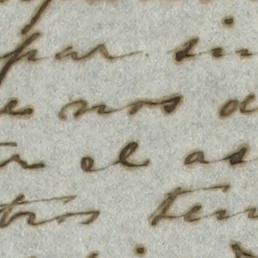 par sin
e nos d
r el as
tros ten